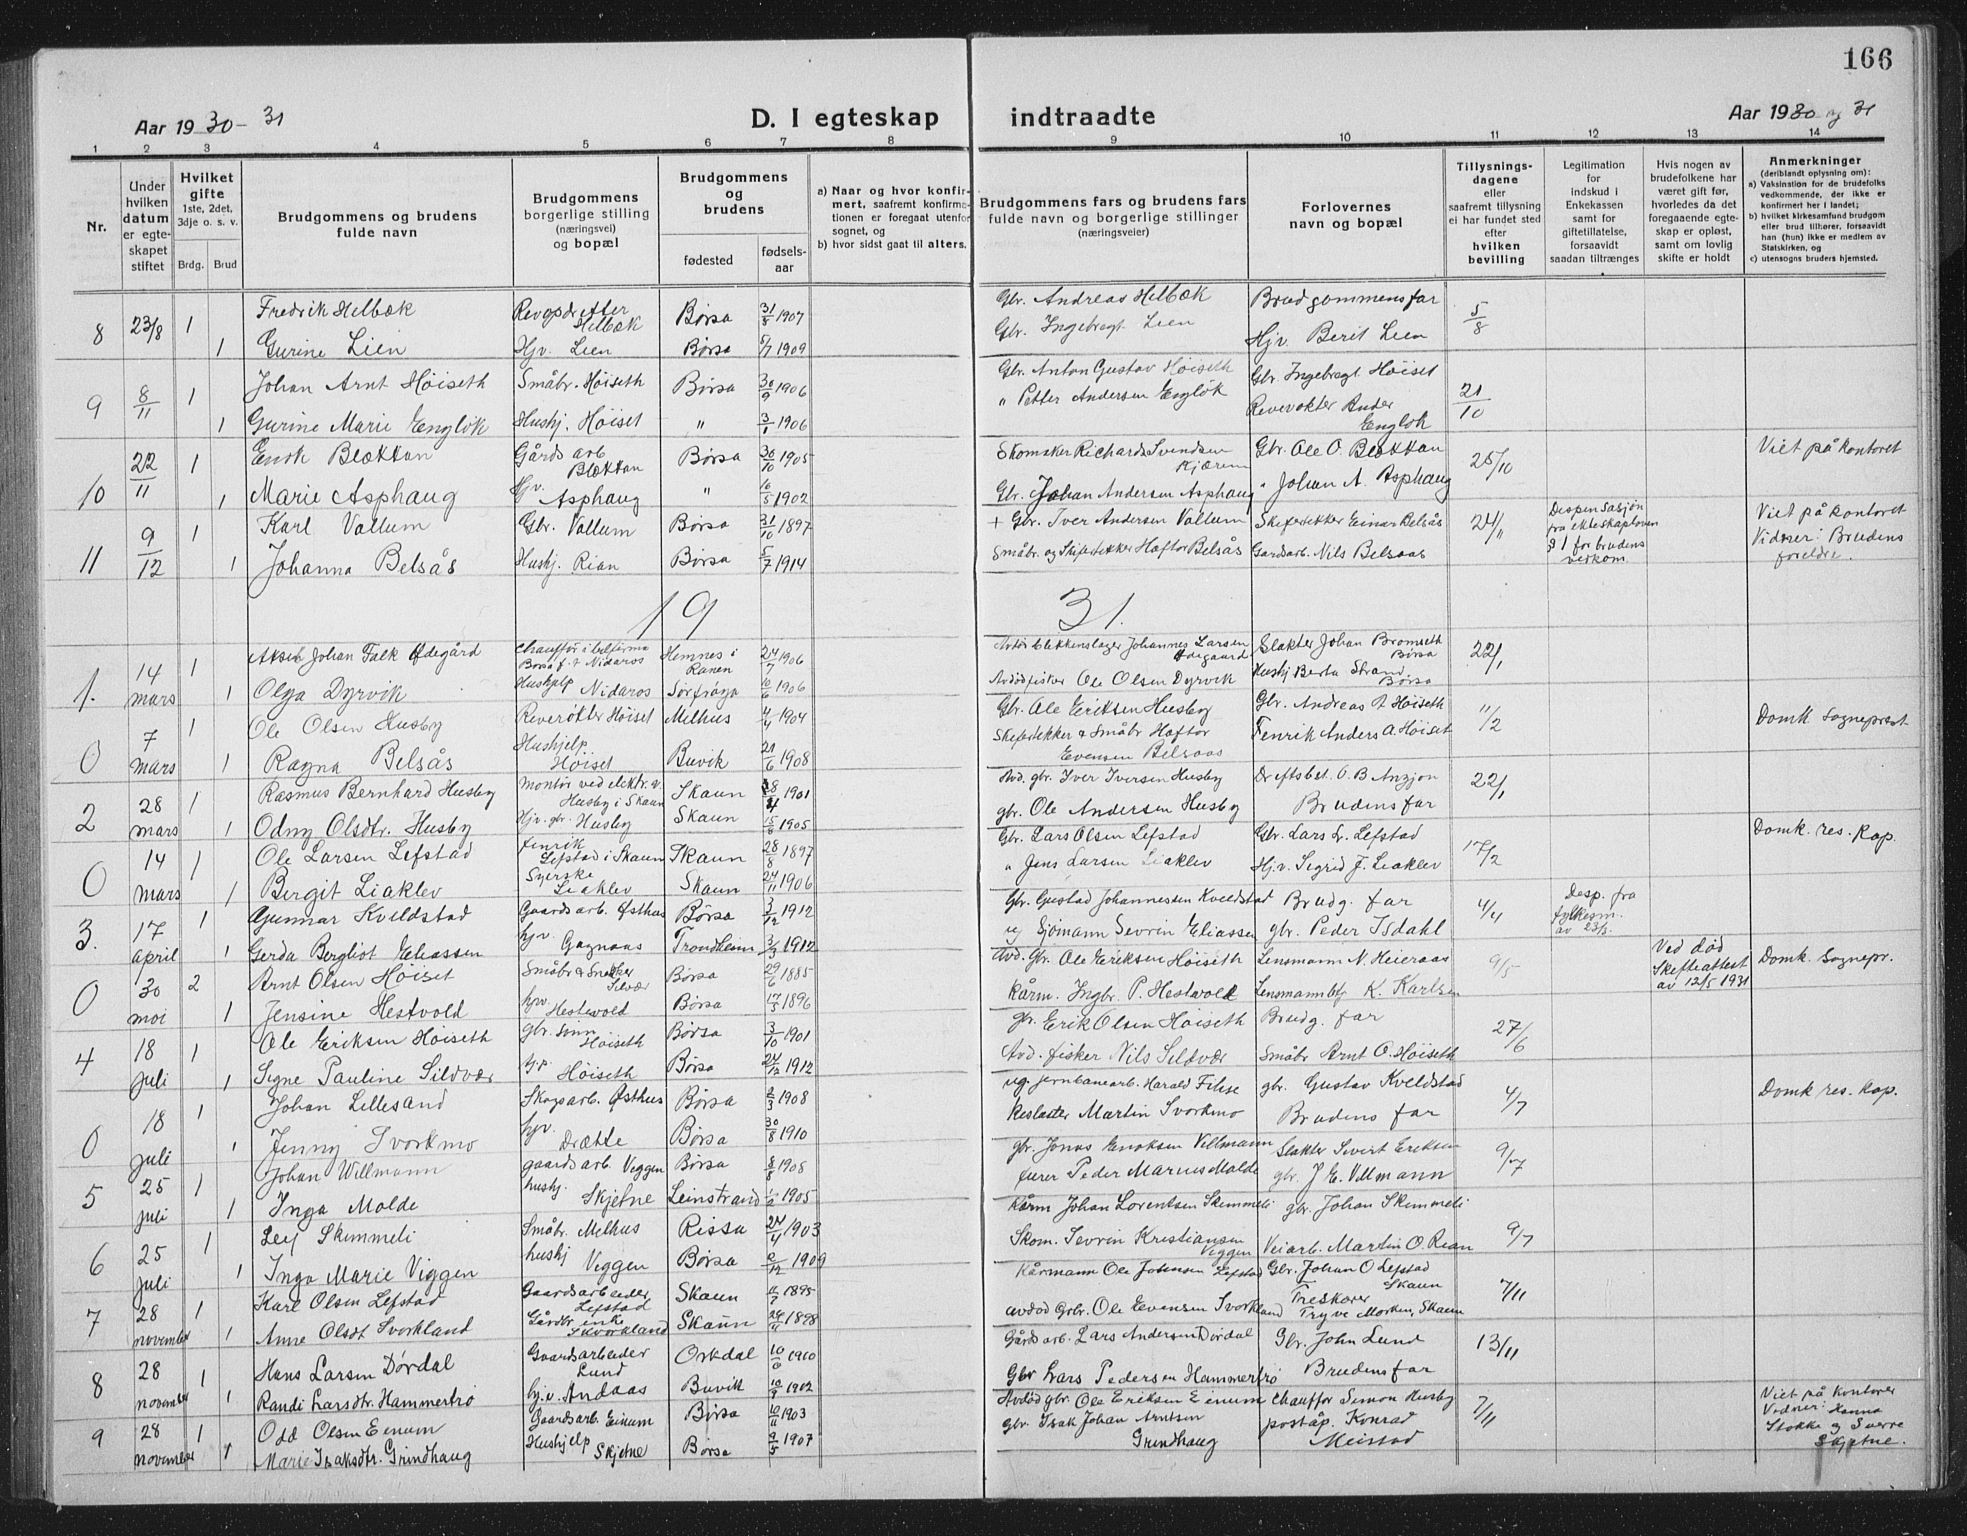 166
Aar 1930-31
D. I egteskap indtraadte
Aar 1930 og 31
1 2 3 4 5 6 7 8 9 10 11 12 13 14
Nr.
Under hvilken datum er egteskapet stiftet
Hvilket gifte
1ste, 2det, 3dje o. s. v.
Brdg. Brud
Brudgommens og brudens fulde navn
Brudgommens borgerlige stilling (næringsvei) og bopæl
Brudgommens og brudens
fødested
fødselsaar
a) Naar og hvor konfirmert, saafremt konfirmationen er foregaat utenfor sognet, og
b) hvor sidst gaat til alters.
Brudgommens fars og brudens fars fulde navn og borgerlige stillinger (næringsveier)
Forlovernes navn og bopæl
Tillysningsdagene eller saafremt tillysning ei har fundet sted efter hvilken bevilling
Legitimation for indskud i Enkekassen samt for giftetillatelse, forsaavidt saadan tiltrænges
Hvis nogen av brudefolkene har været gift før, hvorledes da det foregaaende egteskap er opløst, samt om lovlig skifte er holdt
Anmerkninger (deriblandt oplysning om):
a) Vaksination for de brudefolks vedkommende, der ikke er konfirmert her i landet;
b) hvilket kirkesamfund brudgom eller brud tilhører, forsaavidt han (hun) ikke er medlem av Statskirken, og
c) utensogns bruders hjemsted.
8 23/8 1 Fredrik Helbæk Helbæk Børsa 31/8 1907 Gbr. Andreas Helbæk Brudgommens far 5/8
1 Gurine Lien Hjv. Lien Børsa 5/7 1909 Gbr. Ingebregt Lien Hjv Berit Lien
9 8/11 1 Johan Arnt Höiseth Småbr. Höiseth Børsa 30/9 1906 Gbr. Anton Gustav Höiseth Gbr. Ingebregt Höiset 21/10
1 Gurine Marie Englök Hushj. Höiset " 3/1 1906 " Petter Andersen Englök Revevokter Ander Englök
10 22/11 1 Enok Blækkan Gårds arb Blækkan Børsa 30/10 1905 Skomaker Richard Svendsen Kjærem Gbr. Ole O. Blækkan 25/10 Viet på kontoret
1 Marie Asphaug Hjv. Asphaug " 16/5 1902 Gbr. Johan Andersen Asphaug " Johan A. Asphaug
11 9/12 1 Karl Vallum Gbr. Vallum Børsa 31/10 1897 + Gbr. Iver Andersen Vallum Skiferdekker Einar Belsås 24/11 Dispensasjon fra ekteskaploven § 1 for brudens verkom. Viet på kontoret Vidner: Brudens foreldre.
1 Johanna Belsås Hushj. Rian Børsa 5/7 1914 Småbr. og Skiferdekker Haftor Belsås Gardsarb. Nils Belsaas
19 31.
1. 14 mars 1 Aksel Johan Falk Ødegård Chauffør i bilfirma Børsa f. t Nidaros Hemnes i Ranen 24/7 1906 Johannes Larsen Ødegaard Slakter Johan Bromseth Børsa 22/1
1 Olga Dyrvik Hushjelp Nidaros Sørfrøya 10/6 1906 Avdød fisker Ole Olsen Dyrvik Hushj Berta Strand Børsa
0 7 mars 1 Ole Olsen Husby Reverøkter Höiset Melhus 4/4 1904 Gbr. Ole Eriksen Husby Gbr. Andreas P. Höiseth 11/2 Domk Sogneprest
1 Ragna Belsås Hushjelp Höiset Buvik 21/6 1908 Skiferdekker & Småbr Haftor Evensen Belsaas Fenrik Anders A. Höiset
2 28 mars 1 Rasmus Bernhard Husby Montør ved elektr. v. Husby i Skaun Skaun 1901 Avd. gbr. Iver Iversen Husby Driftsbest. O. B. Angjon 22/1
1 Odny Olsdtr. Husby Hjv. gbr. Husby Skaun 1905 gbr. Ole Andersen Husby Brudens far
0 14 mars 1 Ole Larsen Lefstad Fenrik Lefstad i Skaun Skaun 28/8 1897 Gbr. Lars Olsen Lefstad Gbr. Lars Lr. Lefstad 17/2 Domk. res. Kap.
1 Bergit Liaklev Syerske Liaklev Skaun 24/11 1906 " Jens Larsen Liaklev Hjv. Sigrid J. Liaklev
3. 17 april 1 Gunnar Kveldstad Gaardsarb. Østhus Børsa 3/12 1912 Gbr. Gustad Johannessen Kveldstad Brudg. far 4/4 Desp. fra fylkesm. av 23/3.
1 Gerda Bergliot Eliassen hjv. Gagnaas Trondheim 3/3 1912 Sjømann Sevrin Eliassen gbr. Peder Isdahl
0 30 mai 2 Arnt Olsen Höiset Småbr & Snekker Sildvær Børsa 29/6 1885 Avd. Gbr. Ole Eriksen Höiseth Lensmann N. Heieraas 9/5 Ved død Skifteattest av 12/5 1931 Domk. Sognepr.
1 Jensine Hestvold hjv Hestevold Børsa 17/3 1896 Kårm. Ingbr. P. Hestvold Lensmannbtj K. Karlsen
4 18 juli 1 Ole Eriksen Höiseth gbr. sønn Höiseth Børsa 3/10 1901 gbr. Erik Olsen Höiseth Brudg. far 27/6
1 Signe Pauline Sildvær Höiseth Børsa 24/12 1912 Avd. fisker Nils Sildvær Småbr Arnt O. Höiseth
0 18 juli 1 Johan Lillesand Skogsarb. Østhus Børsa 2/3 1908 ug. jernbanearb. Harald Filse gbr. Gustav Kveldstad 4/7 Domk res. Kap.
1 Jenny Svorkmo hjv. Drætte Børsa 30/8 1910 Martin Svorkmo Brudens far
5 25 juli 1 Johan Willmann gaardsarb. Veggen Børsa 8/8 1908 gbr. Jonas Enoksen Villmann Slakter Sivert Eriksen 9/7
1 Inga Molde hushj. Skjetne Leinstrand 1905 furer Peder Marius Molde gbr. J. E. Villmann
6 25 juli 1 Leif Skemmeli Småbr. Melhus Rissa 24/4 1903 Kårm Johan Lorentsen Skemmeli gbr. Johan Skemmeli 9/7
1 Inga Marie Viggen hushj Veggen Børsa 2/12 1909 Skom. Sevrin Kristiansen Veggen Veiarb. Martin O. Rian
7 28 november 1 Karl Olsen Lefstad Gaardsarbeider Lefstad Skaun 1895 Kårmann Ole Johnsen Lefstad Gbr. Johan O Lefstad Skaun 7/11
1 Anne Olsdt Svorkland Gårdbr. enke Svorkland Skaun 24/11 1898 avdød Grbr. Ole Evensen Svorkland Treskorer Tryve Morken, Skaun
8 28 november 1 Hans Larsen Dørdal Gaardsarbeider Lund Orkdal 1910 Gårdsarb. Lars Andersen Dørdal Gbr. John Lund 13/11
1 Randi Larsdtr. Hammertrø hj.v. Andaas Buvik 10/9 1902 Gbr Lars Pedersen Hammertrø Brudens far
9 28 november 1 Odd Olsen Einum Gaardsarb. Einum Børsa 10/11 1903 Avdød gbr. Ole Eriksen Einum Chauffør Simon Husby 7/11 Viet på kontoret Vidner: Hanna Stokke og Sverre Skjetne.
1 Marie Isaksdtr. Grindhaug Hushjelp Skjetne Børsa 9/5 1907 gbr. Isak Johan Arntsen Grindhaug poståp. Konrad Meistad